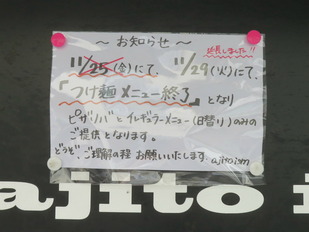 ～ お知らせ ～
延長しました!!
11/25(金)にて、 11/29(火)にて、
『つけ麺メニュー終了』となり
ピザソバとイレギュラーメニュー(日替り)のみの
ご提供となります。
どうぞ、ご理解の程 お願いいたします。ajito ism
ajito i